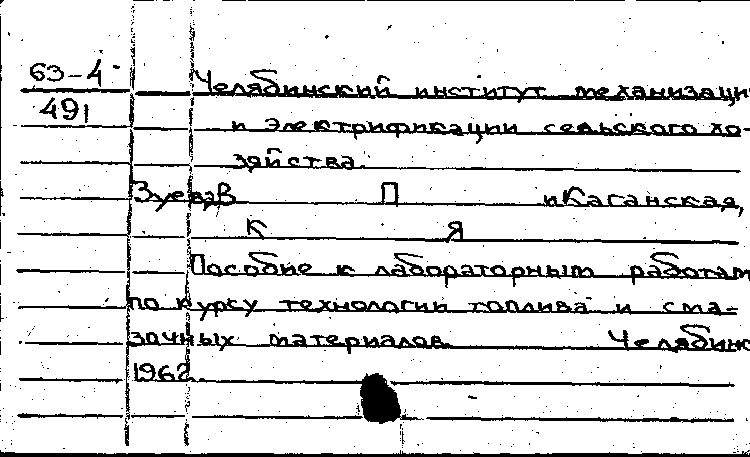 63-4
491
Челябинский институт механизаци
и электрификации сельского хо-
зяйства.
Зуева, В П и Каганская,
К Я
Пособие к лабораторным работам
по курсу технологии топлива и сма-
зочных материалов. Челябинс
1962.